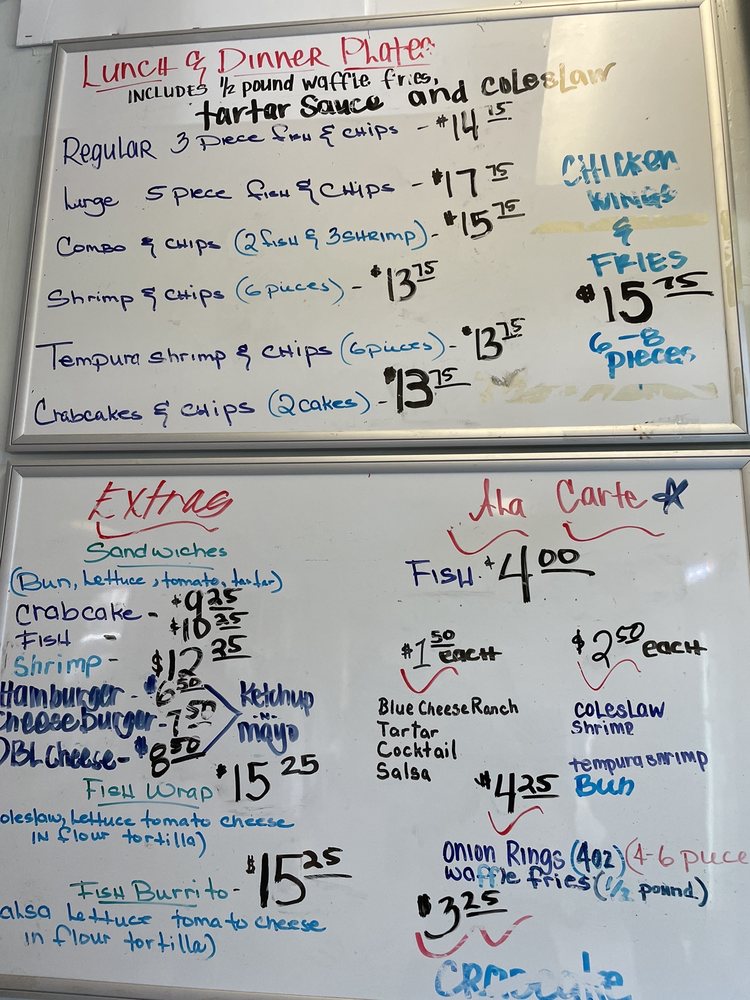 Lunch & Dinner Plates
INCLUDES 1/2 pound waffle fries,
tartar sauce and coleslaw
Regular 3 piece fish & chips - $14 75
Large 5 piece fish & chips - $17 75
Combo & chips (2 fish & 3 shrimp) - $15 75
Shrimp & chips (6 pieces) - $13 75
Tempura shrimp & chips (6 pieces) - $13 75
Crabcakes & chips (2 cakes) - $13 75
CHICKEN
WINGS
&
FRIES
$15 75
6-8
pieces
Extras
Sandwiches
(Bun, Lettuce, tomato, tartar)
Crabcake - $9 25
FISH - $10 25
Shrimp - $12 25
Hamburger - $6 50
Cheeseburger - 7 50
DBL Cheese - $8 50
Ketchup
-N-
mayo
Fish Wrap $15 25
oleslaw, lettuce tomato cheese
in flour tortilla)
Fish Burrito - $15 25
alsa lettuce tomato cheese
in flour tortilla)
Ala Carte
FISH - $4 00
$1 50 each
Blue Cheese Ranch
Tartar
Cocktail
Salsa
$2 50 each
coleslaw
shrimp
tempura shrimp
Bun
$4 25
Onion Rings (4oz) (4-6 piece
waffle fries (1/2 pound)
$3 25
Crabcake